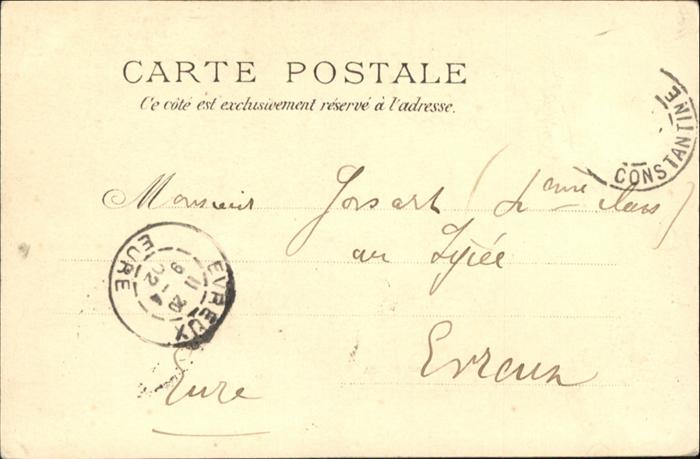 CARTE POSTALE
Ce côté est exclusivement réservé à l'adresse.
CONSTANTINE
Monsieur Jossart (4eme Class)
au Lycée
Evreux
Eure
EVREUX
EURE